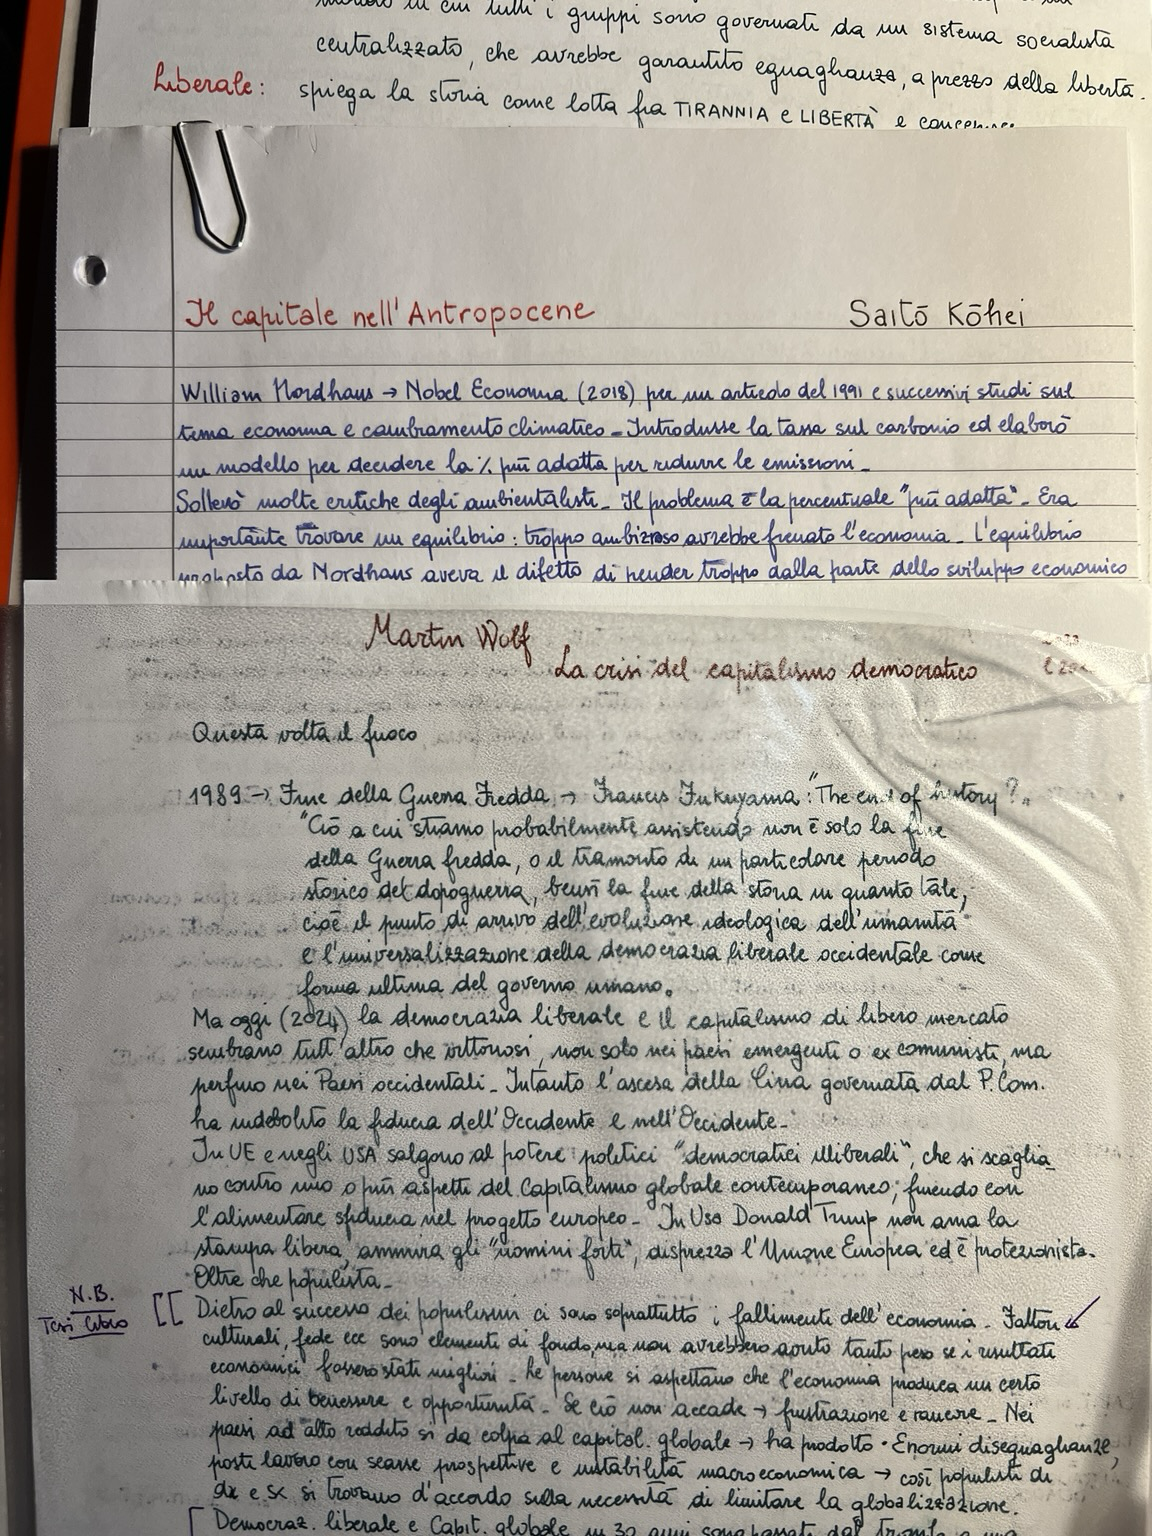 in cui tutti i gruppi sono governati da un sistema socialista
centralizzato, che avrebbe garantito eguaglianza, a prezzo della libertà.
Liberale: spiega la storia come lotta fra TIRANNIA e LIBERTÀ e
Il capitale nell'Antropocene Saitō Kōhei
William Nordhaus → Nobel Economia (2018) per un articolo del 1991 e successivi studi sul
tema economia e cambiamento climatico - Introdusse la tassa sul carbonio ed elaborò
un modello per decidere la % più adatta per ridurre le emissioni -
Sollevò molte critiche degli ambientalisti - Il problema è la percentuale "più adatta" - Era
importante trovare un equilibrio: troppo ambizioso avrebbe frenato l'economia - L'equilibrio
proposto da Nordhaus aveva il difetto di pender troppo dalla parte dello sviluppo economico
Martin Wolf
La crisi del capitalismo democratico
Questa volta il fuoco
1989 → Fine della Guerra Fredda → Francis Fukuyama: "The end of history?"
"Ciò a cui stiamo probabilmente assistendo non è solo la fine
della Guerra fredda, o il tramonto di un particolare periodo
storico del dopoguerra, bensì la fine della storia in quanto tale;
cioè il punto di arrivo dell'evoluzione ideologica dell'umanità
e l'universalizzazione della democrazia liberale occidentale come
forma ultima del governo umano.
Ma oggi (2024) la democrazia liberale e il capitalismo di libero mercato
sembrano tutt'altro che vittoriosi, non solo nei paesi emergenti o ex comunisti, ma
perfino nei Paesi occidentali - Intanto l'ascesa della Cina governata dal P. Com.
ha indebolito la fiducia dell'Occidente e nell'Occidente -
In UE e negli USA salgono al potere politici "democratici illiberali", che si scaglia
no contro uno o più aspetti del Capitalismo globale contemporaneo; finendo con
l'alimentare sfiducia nel progetto europeo - In Usa Donald Trump non ama la
stampa libera, ammira gli "uomini forti", disprezza l'Unione Europea ed è protezionista.
Oltre che populista -
N.B.
Tesi libro
[[ Dietro al successo dei populismi ci sono soprattutto i fallimenti dell'economia - Fattori
culturali, fede ecc sono elementi di fondo, ma non avrebbero avuto tanto peso se i risultati
economici fossero stati migliori - Le persone si aspettano che l'economia produca un certo
livello di benessere e opportunità - Se ciò non accade → frustrazione e rancore - Nei
paesi ad alto reddito si da colpa al capitol. globale → ha prodotto • Enormi diseguaglianze,
posti lavoro con scarse prospettive e instabilità macroeconomica → così populisti di
dx e sx si trovano d'accordo sulla necessità di limitare la globalizzazione.
[ Democraz. liberale e Capit. globale in 30 anni sono passati dal trionfo a una